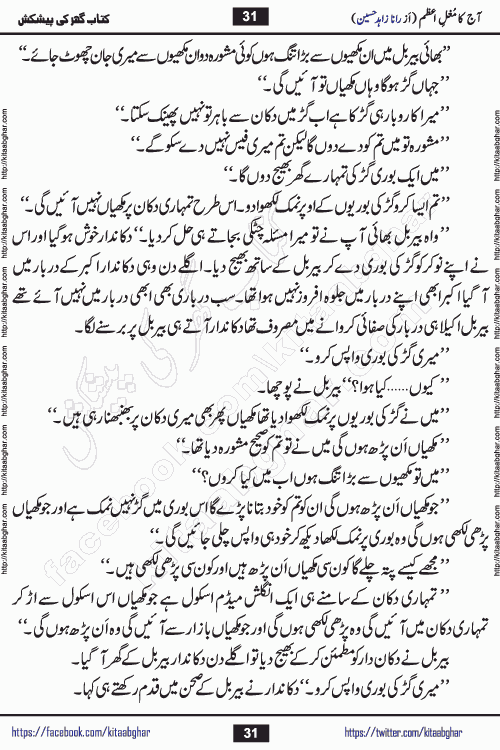 آج کا مُغلِ اعظم (از رانا زاہد حسین)
31
کتاب گھر کی پیشکش
’’بھائی بیربل میں ان مکھیوں سے بڑا تنگ ہوں کوئی مشورہ دو ان مکھیوں سے میری جان چھوٹ جائے۔‘‘
’’جہاں گڑ ہوگا وہاں مکھیاں تو آئیں گی۔‘‘
’’میرا کاروبار ہی گڑ کا ہے اب گڑ میں دکان سے باہر تو نہیں پھینک سکتا۔‘‘
’’مشورہ تو میں تم کو دے دوں گا لیکن تم میری فیس نہیں دے سکو گے۔‘‘
’’میں ایک بوری گڑ کی تمہارے گھر بھیج دوں گا۔‘‘
’’تم ایسا کرو گڑ کی بوریوں کے اوپر نمک لکھوا دو۔ اس طرح تمہاری دکان پر مکھیاں نہیں آئیں گی۔‘‘
’’واہ بیربل بھائی آپ نے تو میرا مسئلہ چٹکی بجاتے ہی حل کر دیا۔‘‘ دکاندار خوش ہو گیا اور اس
نے اپنے نوکر کو گڑ کی بوری دے کر بیربل کے ساتھ بھیج دیا۔ اگلے دن وہی دکاندار اکبر کے دربار میں
آ گیا اکبر ابھی اپنے دربار میں جلوہ افروز نہیں ہوا تھا۔ سب درباری بھی ابھی دربار میں نہیں آئے تھے
بیربل اکیلا ہی دربار کی صفائی کروانے میں مصروف تھا دکاندار آتے ہی بیربل پر برسنے لگا۔
’’میری گڑ کی بوری واپس کرو۔‘‘
’’کیوں......کیا ہوا؟‘‘ بیربل نے پوچھا۔
’’میں نے گڑ کی بوریوں پر نمک لکھوا دیا تھا مکھیاں پھر بھی میری دکان پر بھنبھنا رہی ہیں۔‘‘
’’مکھیاں اَن پڑھ ہوں گی میں نے تو تم کو صحیح مشورہ دیا تھا۔‘‘
’’میں تو مکھیوں سے بڑا تنگ ہوں اب میں کیا کروں؟‘‘
’’جو مکھیاں اَن پڑھ ہوں گی ان کو تم کو خود بتانا پڑے گا اس بوری میں گڑ نہیں نمک ہے اور جو مکھیاں
پڑھی لکھی ہوں گی وہ بوری پر نمک لکھا دیکھ کر خود ہی واپس چلی جائیں گی۔‘‘
’’مجھے کیسے پتہ چلے گا کون سی مکھیاں اَن پڑھ ہیں اور کون سی پڑھی لکھی ہیں۔‘‘
’’تمہاری دکان کے سامنے ہی ایک انگلش میڈیم اسکول ہے جو مکھیاں اس اسکول سے اڑ کر
تمہاری دکان میں آئیں گی وہ پڑھی لکھی ہوں گی اور جو مکھیاں بازار سے آئیں گی وہ اَن پڑھ ہوں گی۔‘‘
بیربل نے دکان دار کو مطمئن کر کے بھیج دیا تو اگلے دن دکاندار بیربل کے گھر آ گیا۔
’’میری گڑ کی بوری واپس کرو۔‘‘ دکاندار نے بیربل کے صحن میں قدم رکھتے ہی کہا۔
http://kitaabghar.com http://kitaabghar.com http://kitaabghar.com http://kitaabghar.com http://kitaabghar.com http://kitaabghar.com
http://kitaabghar.com http://kitaabghar.com http://kitaabghar.com http://kitaabghar.com http://kitaabghar.com http://kitaabghar.com
https://facebook.com/kitaabghar
31
https://twitter.com/kitaabghar